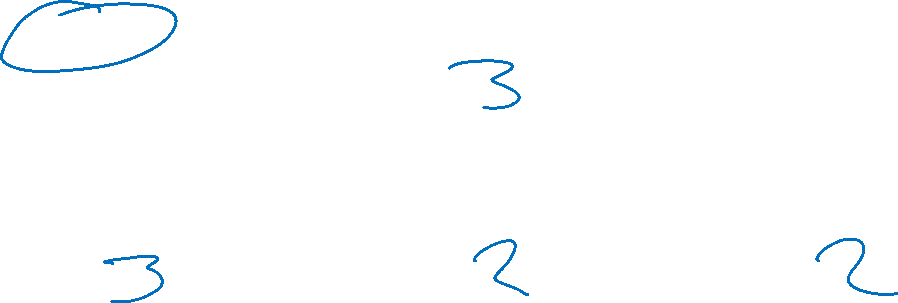 3
3 2 2